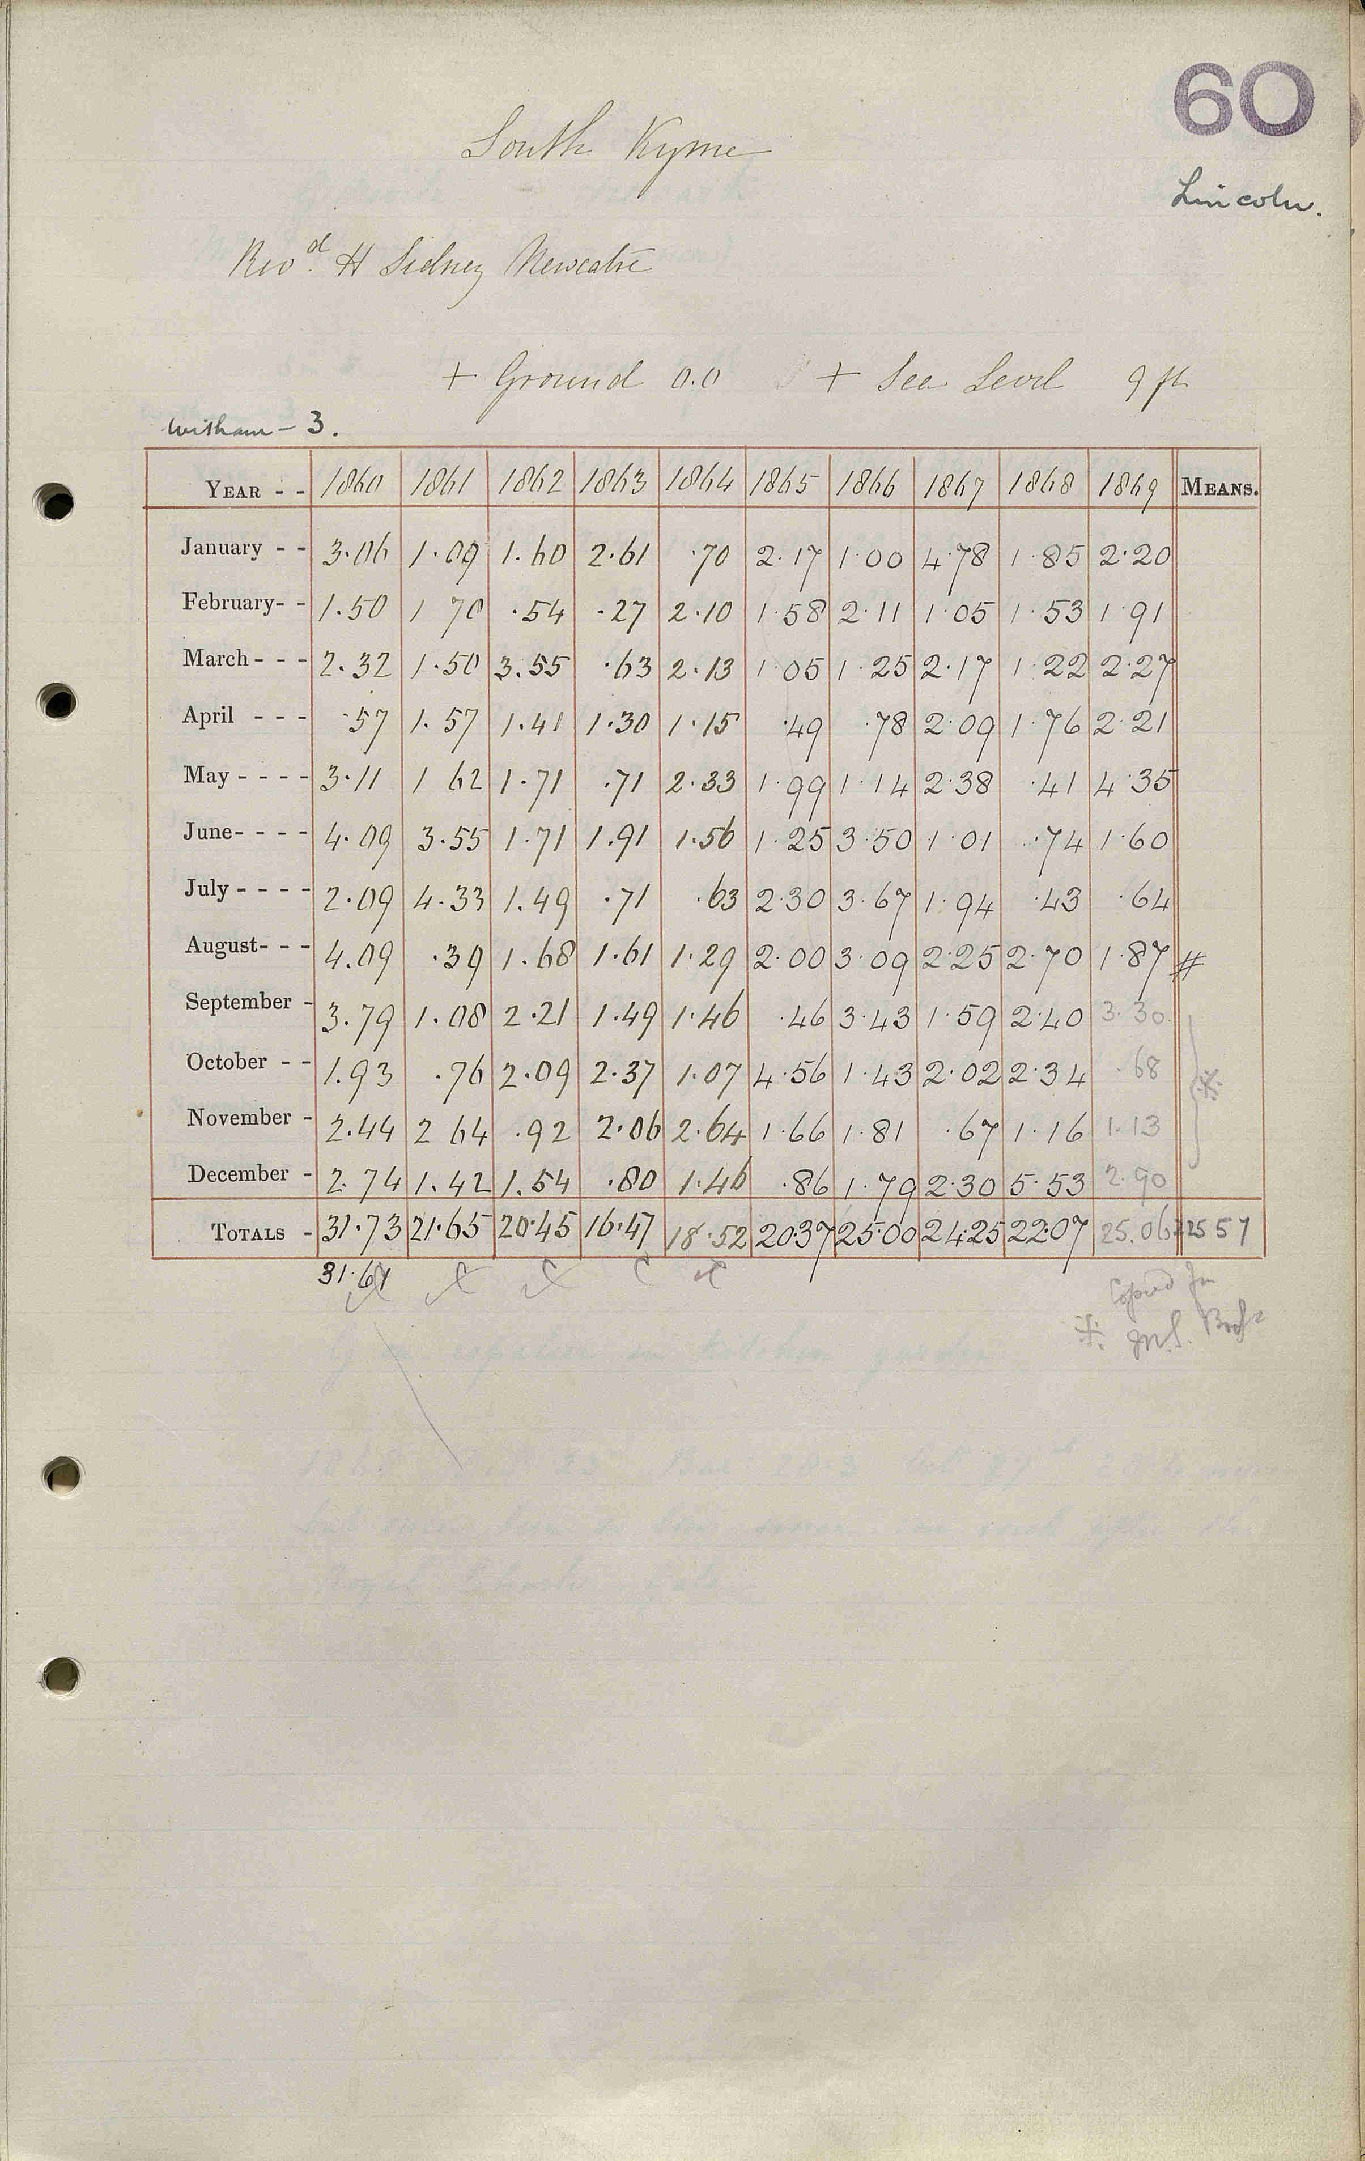 60
South Kyme
Lincoln.
Revd. H Sidney
+ Ground 0.0 + Sea Level 9 ft
Witham - 3.
YEAR - - 1860 1861 1862 1863 1864 1865 1866 1867 1868 1869 MEANS.
January - - 3.06 1.09 1.60 2.61 .70 2.17 1.00 4.78 1.85 2.20
February - - 1.50 1 70 .54 .27 2.10 1.58 2.11 1.05 1.53 1.91
March - - - 2.32 1.50 3.55 .63 2.13 1.05 1.25 2.17 1.22 2.27
April - - - .57 1.57 1.41 1.30 1.15 .49 .78 2.09 1.76 2.21
May - - - - 3.11 1 62 1.71 .71 2.33 1.99 1.14 2.38 .41 4.35
June - - - - 4.09 3.55 1.71 1.91 1.56 1.25 3.50 1.01 .74 1.60
July - - - - 2.09 4.33 1.49 .71 .63 2.30 3.67 1.94 .43 .64
August - - - 4.09 .39 1.68 1.61 1.29 2.00 3.09 2.25 2.70 1.87 #
September - 3.79 1.08 2.21 1.49 1.46 .46 3.43 1.59 2.40 3.30
October - - 1.93 .76 2.09 2.37 1.07 4.56 1.43 2.02 2.34 .68
November - 2.44 2 64 .92 2.06 2.64 1.66 1.81 .67 1.16 1.13
December - 2.74 1.42 1.54 .80 1.46 .86 1.79 2.30 5.53 2.90
TOTALS - 31.73 21.65 20.45 16.47 18.52 20.37 25.00 24.25 22.07 25.06 22557
31.67
Copied fm
M.S.